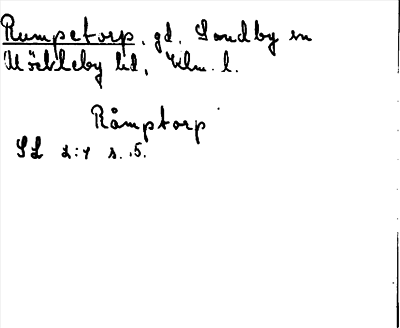 Rumpetorp. gd. Sandby sn
Möckleby hd, Klm. l.
Råmptorp
SL 2:1 s. 5.